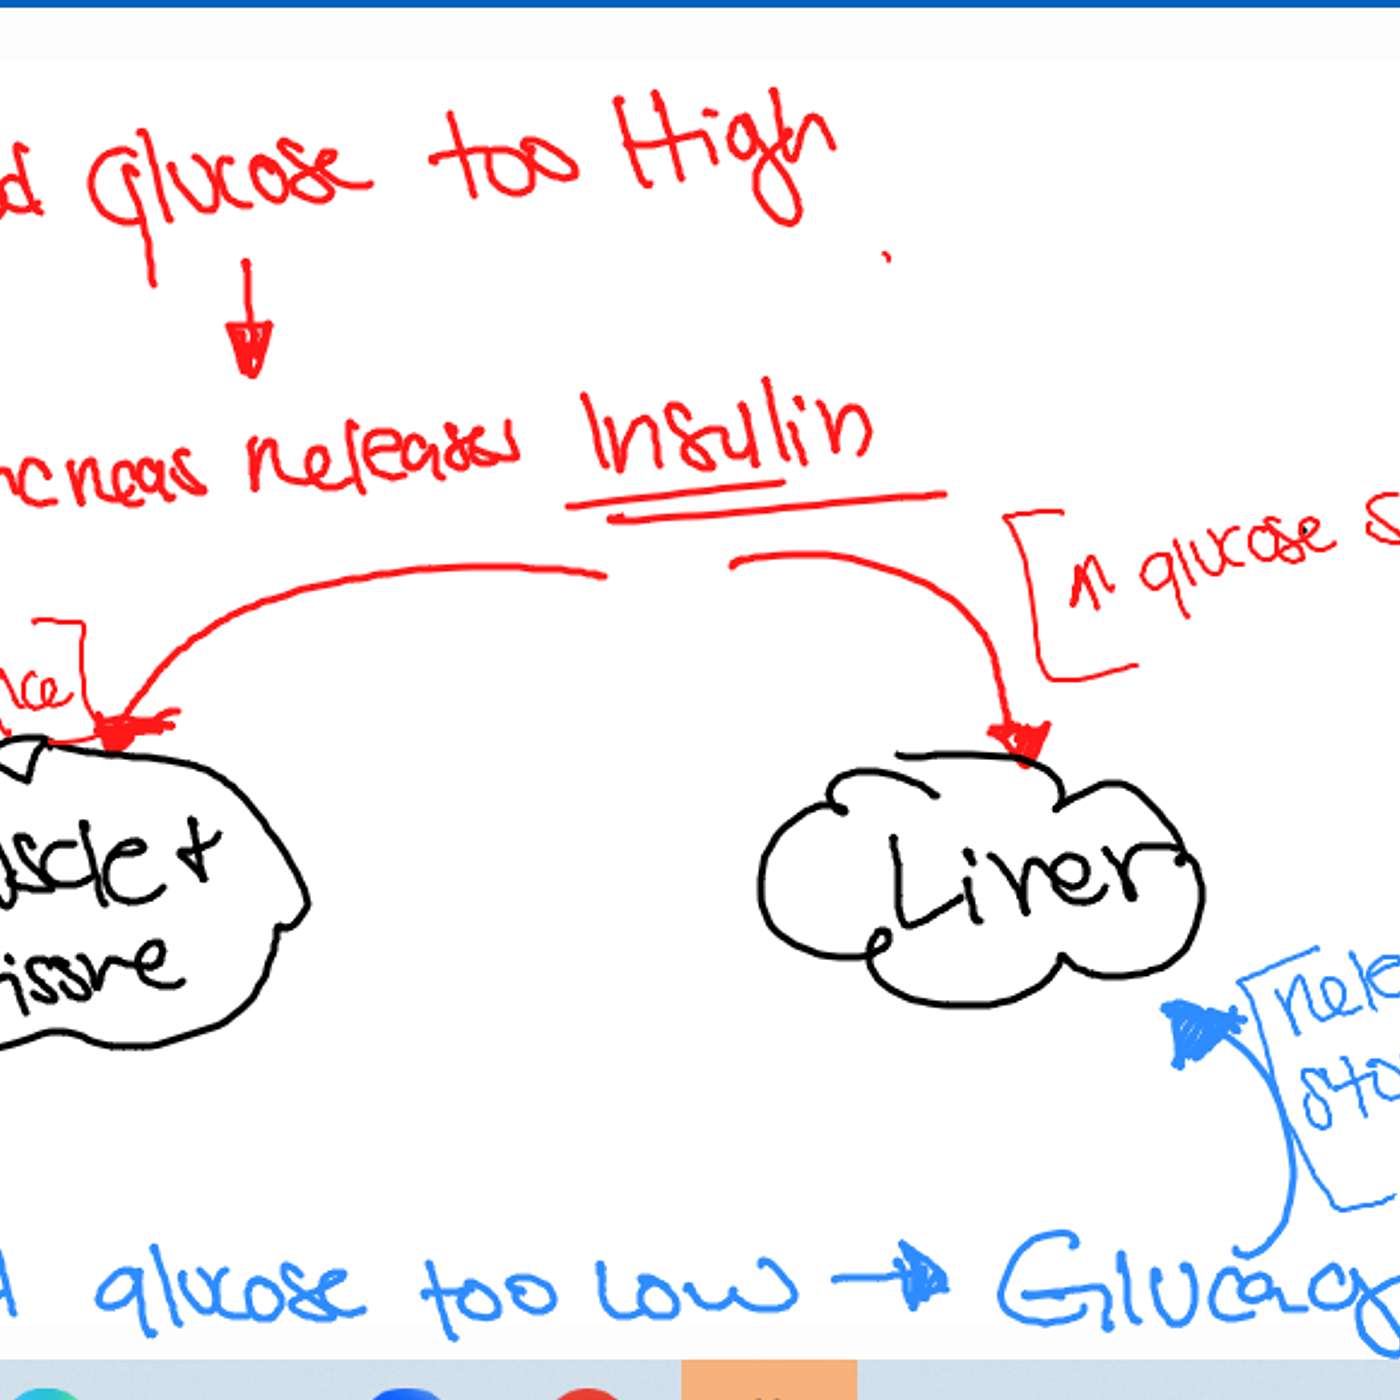 d glucose too High
ncreas releases Insulin
↑ glucose s
nce
uscle +
issue
Liver
rele
sto
d glucose too low → Glucag